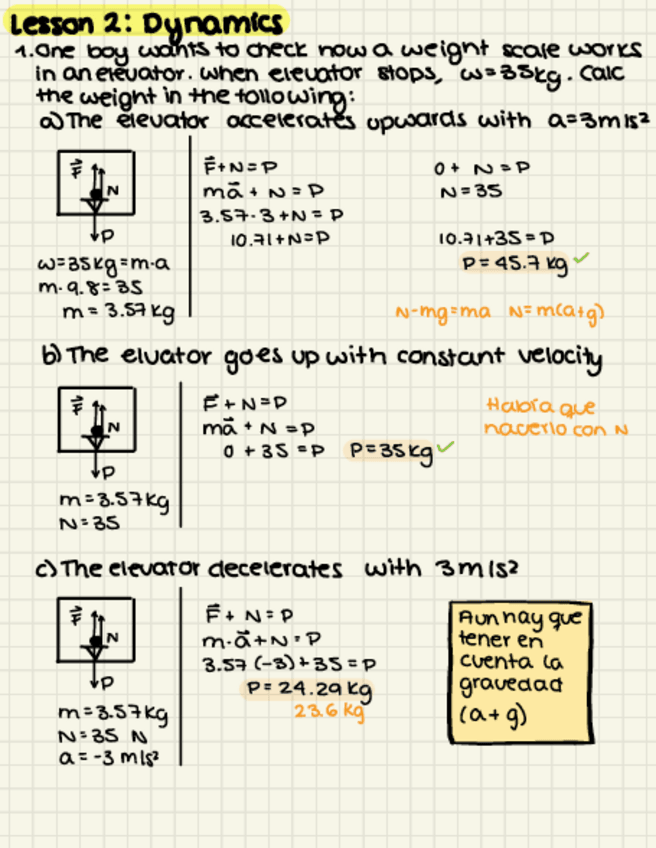 Lesson 2: Dynamics
1. One boy wants to check how a weight scale works
in an elevator. When elevator stops, ω=35kg. Calc
the weight in the following:
a) The elevator accelerates upwards with a=3m/s²
F⃗
N
P
ω=35kg=m·a
m·9.8=35
m = 3.57kg
F⃗+N=P
ma⃗ + N = P
3.57·3+N = P
10.71+N=P
0 + N = P
N=35
10.71+35=P
P=45.7 kg ✓
N-mg=ma N=m(a+g)
b) The eluator goes up with constant velocity
F⃗
N
P
m=3.57kg
N=35
F⃗ + N=P
ma⃗ + N =P
0 + 35 =P P=35kg ✓
Había que
hacerlo con N
c) The elevator decelerates with 3m/s²
F⃗
N
P
m=3.57kg
N=35 N
a=-3 m/s²
F⃗ + N = P
m·a⃗+N=P
3.57(-3)+35=P
P=24.29 kg
23.6 kg
Aun hay que
tener en
cuenta la
gravedad
(a+g)